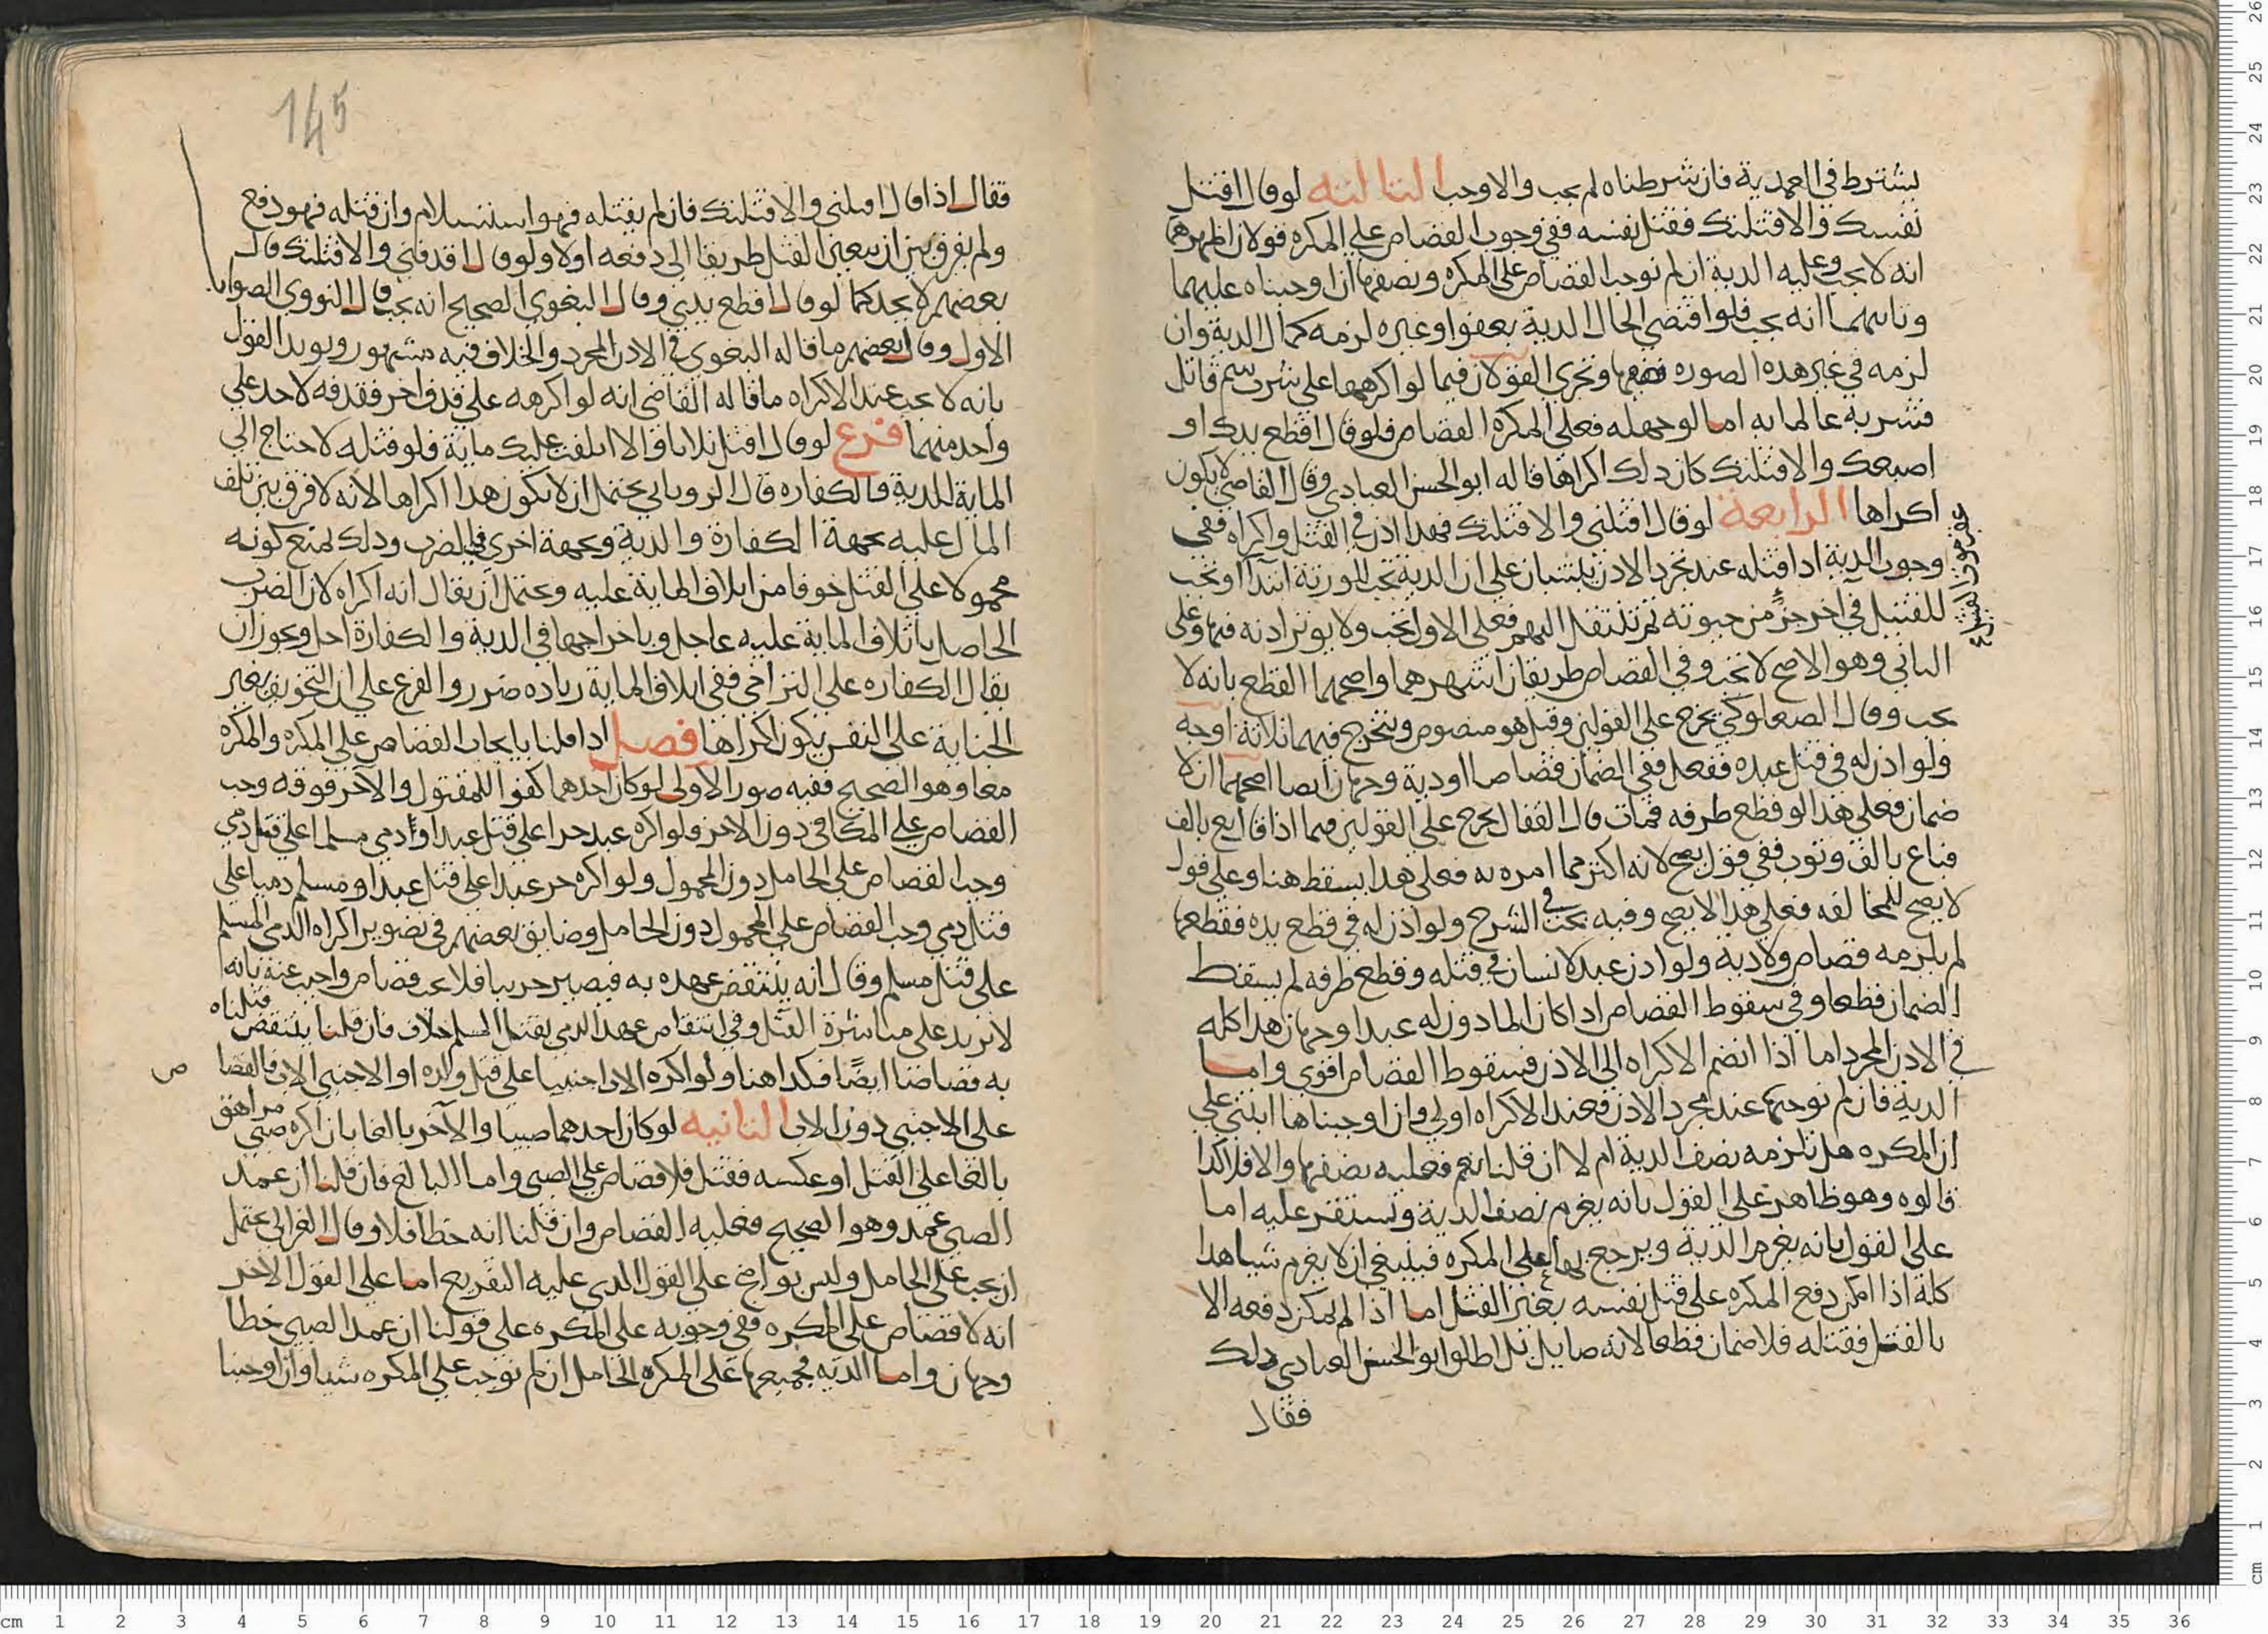 يشترط في العمدية فان شرطناه لم يجب والا وجب الثالثه لو قال اقتل
نفسك والا قتلتك فقتل نفسه ففي وجوب القصاص على المكره قولان اظهرهما
انه لا يجب وعليه الدية ان لم نوجب القصاص على المكره ونصفها ان اوجبناه عليهما
وثانيهما انه يجب فلو اقتضى الحال الدية بعفو او غيره لزمه كمال الدية وان
لزمه في غير هذه الصوره نصفها وتجري القولان فيما لو اكرهه على شرب سم قاتل
فشربه عالما به اما لو جهله فعلى المكره القصاص فلو قال اقطع يدك او
اصبعك والا قتلتك كان ذلك اكراها قاله ابو الحسن العبادي وقال القاضي لا يكون
اكراها الرابعة لو قال اقتلني والا قتلتك فهذا اذن في القتل واكراه ففي
وجوب الدية اذا قتله عند تجرد الاذن يلتبسان على ان الدية تجب للورثة ابتدا او تجب
للقتيل في اخر جزء من حيوته ثم تنتقل اليهم فعلى الاول تجب ولا يوثر اذنه فيها وعلى
الثاني وهو الاصح لا تجب وفي القصاص طريقان اشهرهما واصحهما القطع بانه لا
يجب وقال الصعلوكي يخرج على القولين وقيل هو منصوص ويتخرج فيهما ثلاثة اوجه
ولو اذن له في قتل عبده ففعل ففي الضمان قصاصا او دية وجهان ايضا اصحهما ان لا
ضمان فعلى هذا لو قطع طرفه فمات قال القفال يخرج على القولين فيما اذا قال بع بالف
فباع بالف وثوب ففي قول يصح لانه اكثر مما امره به فعلى هذا يسقط هنا وعلى قول
لا يصح للمخالفه فعلى هذا لا يصح وفيه بحث في الشرح ولو اذن له في قطع يده فقطعها
لم يلزمه قصاص ولا دية ولو اذن عبد لانسان في قتله وقطع طرفه لم يسقط
الضمان قطعا وفي سقوط القصاص اذا كان الماذون له عبدا وجهان هذا كله
في الاذن المجرد اما اذا انضم الاكراه الى الاذن فسقوط القصاص اقوى واما
الدية فان لم نوجبها عند مجرد الاذن فعند الاكراه اولى وان اوجبناها ابتنى على
ان المكره هل تلزمه نصف الدية ام لا ان قلنا نعم فعليه نصفها والا فلا كذا
قالوه وهو ظاهر على القول بانه يغرم نصف الدية وتستقر عليه اما
على القول بانه يغرم الدية ويرجع بها على المكره فينبغي ان لا يغرم شيا هذا
كلة اذا امكن دفع المكره على قتل نفسه بغير القتل اما اذا لم يمكن دفعه الا
بالقتل فقتله فلا ضمان قطعا لانه صايل بل اطلق ابو الحسن العبادي ذلك
فقال
فقال اذا قال اقتلني والا قتلتك فان لم يقتله فهو استسلام وان قتله فهو دفع
ولم يفرق بين ان يتعين القتل طريقا الى دفعه او لا ولو قال اقذفني والا قتلتك قال
بعضهم لا يحد كما لو قال اقطع يدي وقال البغوي الصحيح انه يجب قال النووي الصواب
الاول وقال بعضهم ما قاله البغوي في الاذن المجرد والخلاف فيه مشهور ويويد القول
بانه لا يجب عند الاكراه ما قاله القاضي انه لو اكرهه على قذف اخر فقذفه لا حد على
واحد منهما فرع لو قال اقتل زيدا والا اتلفت عليك ماية فلو قتله لاحتاج الى
الماية للدية والكفاره قال الروياني يحتمل ان لا يكون هذا اكراها لانه لا فرق بين تلف
المال عليه بجهة الكفارة والدية وبجهة اخرى في الضرب وذلك يمنع كونه
محمولا على القتل خوفا من اتلاف الماية عليه ويحتمل ان يقال انه اكراه لان الضرب
الحاصل باتلاف الماية عليه عاجل وباخراجها في الدية والكفارة اجل ويجوز ان
يقال الكفاره على التراخي ففي اتلاف الماية زياده ضرر والفرع على ان التخويف بغير
الجناية على النفس يكون اكراها فصل اذا قلنا بايجاب القصاص على المكره والمكره
معا وهو الصحيح ففيه صور الاولى لو كان احدهما كفوا للمقتول والآخر فوقه وجب
القصاص على المكافئ دون الاخر فلو اكره عبد حرا على قتل عبد او ذمي مسلما على قتل ذمي
وجب القصاص على الحامل دون المحمول ولو اكره حر عبدا على قتل عبد او مسلم ذميا على
قتل ذمي وجب القصاص على المحمول دون الحامل وضايق بعضهم في تصوير اكراه الذمي المسلم
على قتل مسلم وقال انه ينتقض عهده به فيصير حربيا فلا يجب قصاص واجيب عنه بانه
لا يزيد على مباشرة القتل وفي انتقاض عهد الذمي بقتل المسلم خلاف فان قلنا ينتقض قتلناه
به قصاصا ايضًا فكذا هنا ولو اكره الاب اجنبيا على قتل ولده او الاجنبي الاب فالقصا ص
على الاجنبي دون الاب الثانيه لو كان احدهما صبيا والآخر بالغا بان اكره صبي مراهق
بالغا على القتل او عكسه فقتل فلا قصاص على الصبي واما البالغ فان قلنا ان عمد
الصبي عمد وهو الصحيح فعليه القصاص وان قلنا انه خطا فلا وقال الغزالي يحتمل
ان يجب على الحامل وليس بواضح على القول الذي عليه التفريع اما على القول الاخر
انه لا قصاص على المكره ففي وجوبه على المكره على قولنا ان عمد الصبي خطا
وجهان واما الديه فجميعها على المكره الحامل ان لم نوجب على المكره شيا وان اوجبنا
145